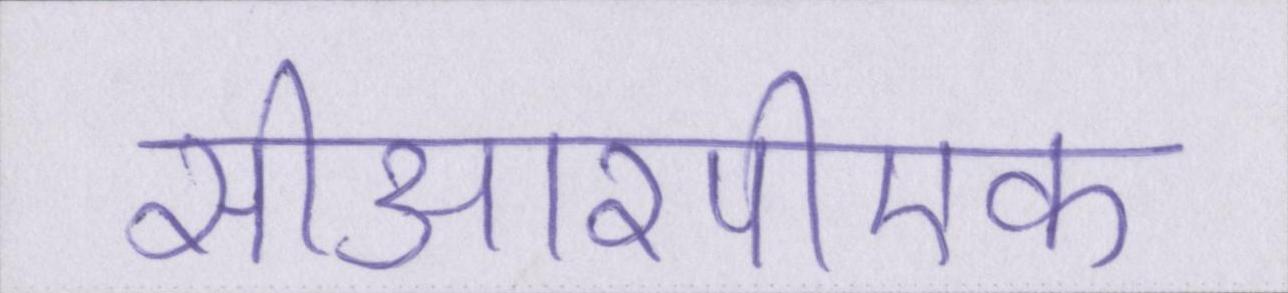 सीआरपीएक